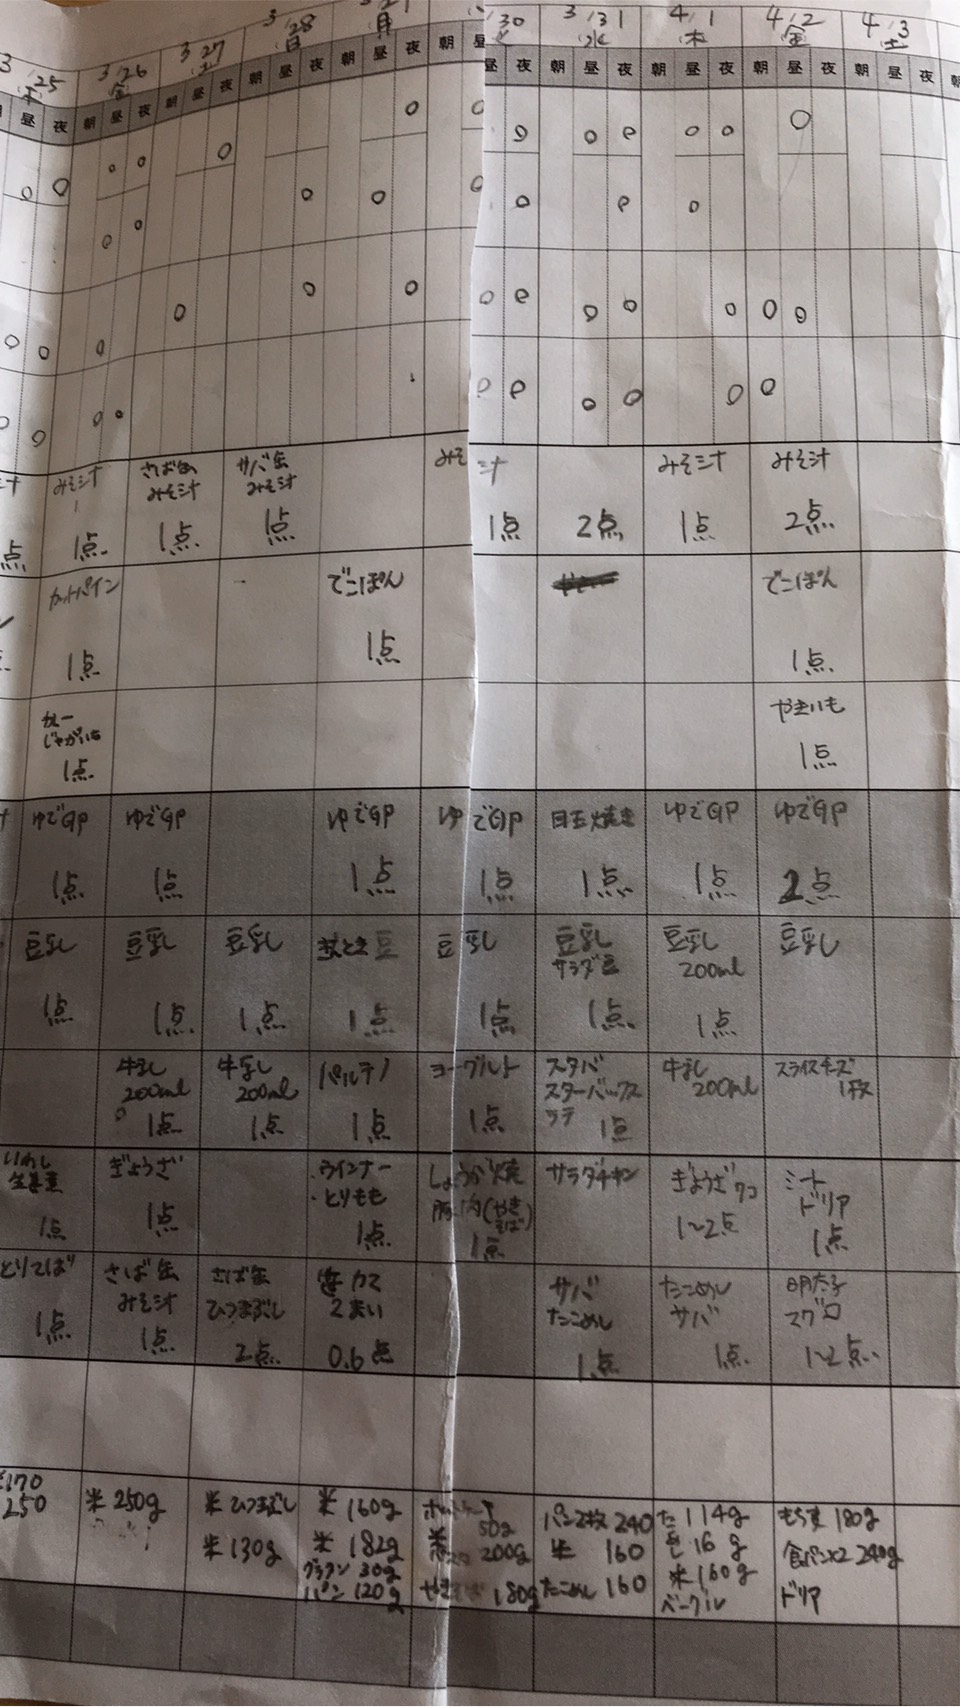 3/25 3/26 金 3/27 土 3/28 日 月 30 3/31 水 4/1 木 4/2 金 4/3 土
昼 夜 朝 昼 夜 朝 昼 夜 朝 昼 夜 朝 昼 夜 朝 昼 昼 夜 朝 昼 夜 朝 昼 夜 朝 昼 夜 朝 昼 夜 朝
みそ汁 さば缶 サバ缶 みそ汁 みそ汁 みそ汁
みそ汁 みそ汁
点 1点 1点 1点 1点 2点 1点 2点
カットパイン でこぽん でこぽん
1点 1点 1点
カレー やきいも
じゃがいも
1点 1点
ゆでGP ゆでGP ゆでGP ゆでGP 目玉焼き ゆでGP ゆでGP
1点 1点 1点 1点 1点 1点 2点
豆乳 豆乳 豆乳 豆 豆乳 豆乳 豆乳 豆乳
サラダ豆 200ml
1点 1点 1点 1点 1点 1点 1点
牛乳 牛乳 パルテノ ヨーグルト スタバ 牛乳 スライスチーズ
200ml 200ml スターバックス 200ml 1枚
1点 1点 1点 1点 ラテ 1点
いわし ぎょうざ ウインナー しょうが焼 サラダチキン ぎょうざ ミート
生姜煮 とりもも 豚肉(やきそば) ドリア
1点 1点 1点 1点 1〜2点 1点
とりてば さば缶 さば缶 笹カマ サバ たこめし 明太子
みそ汁 ひつまぶし 2まい たこめし サバ マグロ
1点 1点 2点 0.6点 1点 1点 1〜2点
170
250 米 250g 米 ひつまぶし 米 160g 50g パン2枚 240 114g もち麦 180g
米 130g 米 182g 200g 米 160 16g 食パン×2 240g
グラタン 30g やきそば 180g たこめし 160 米 160g ドリア
パン 120g ベーグル